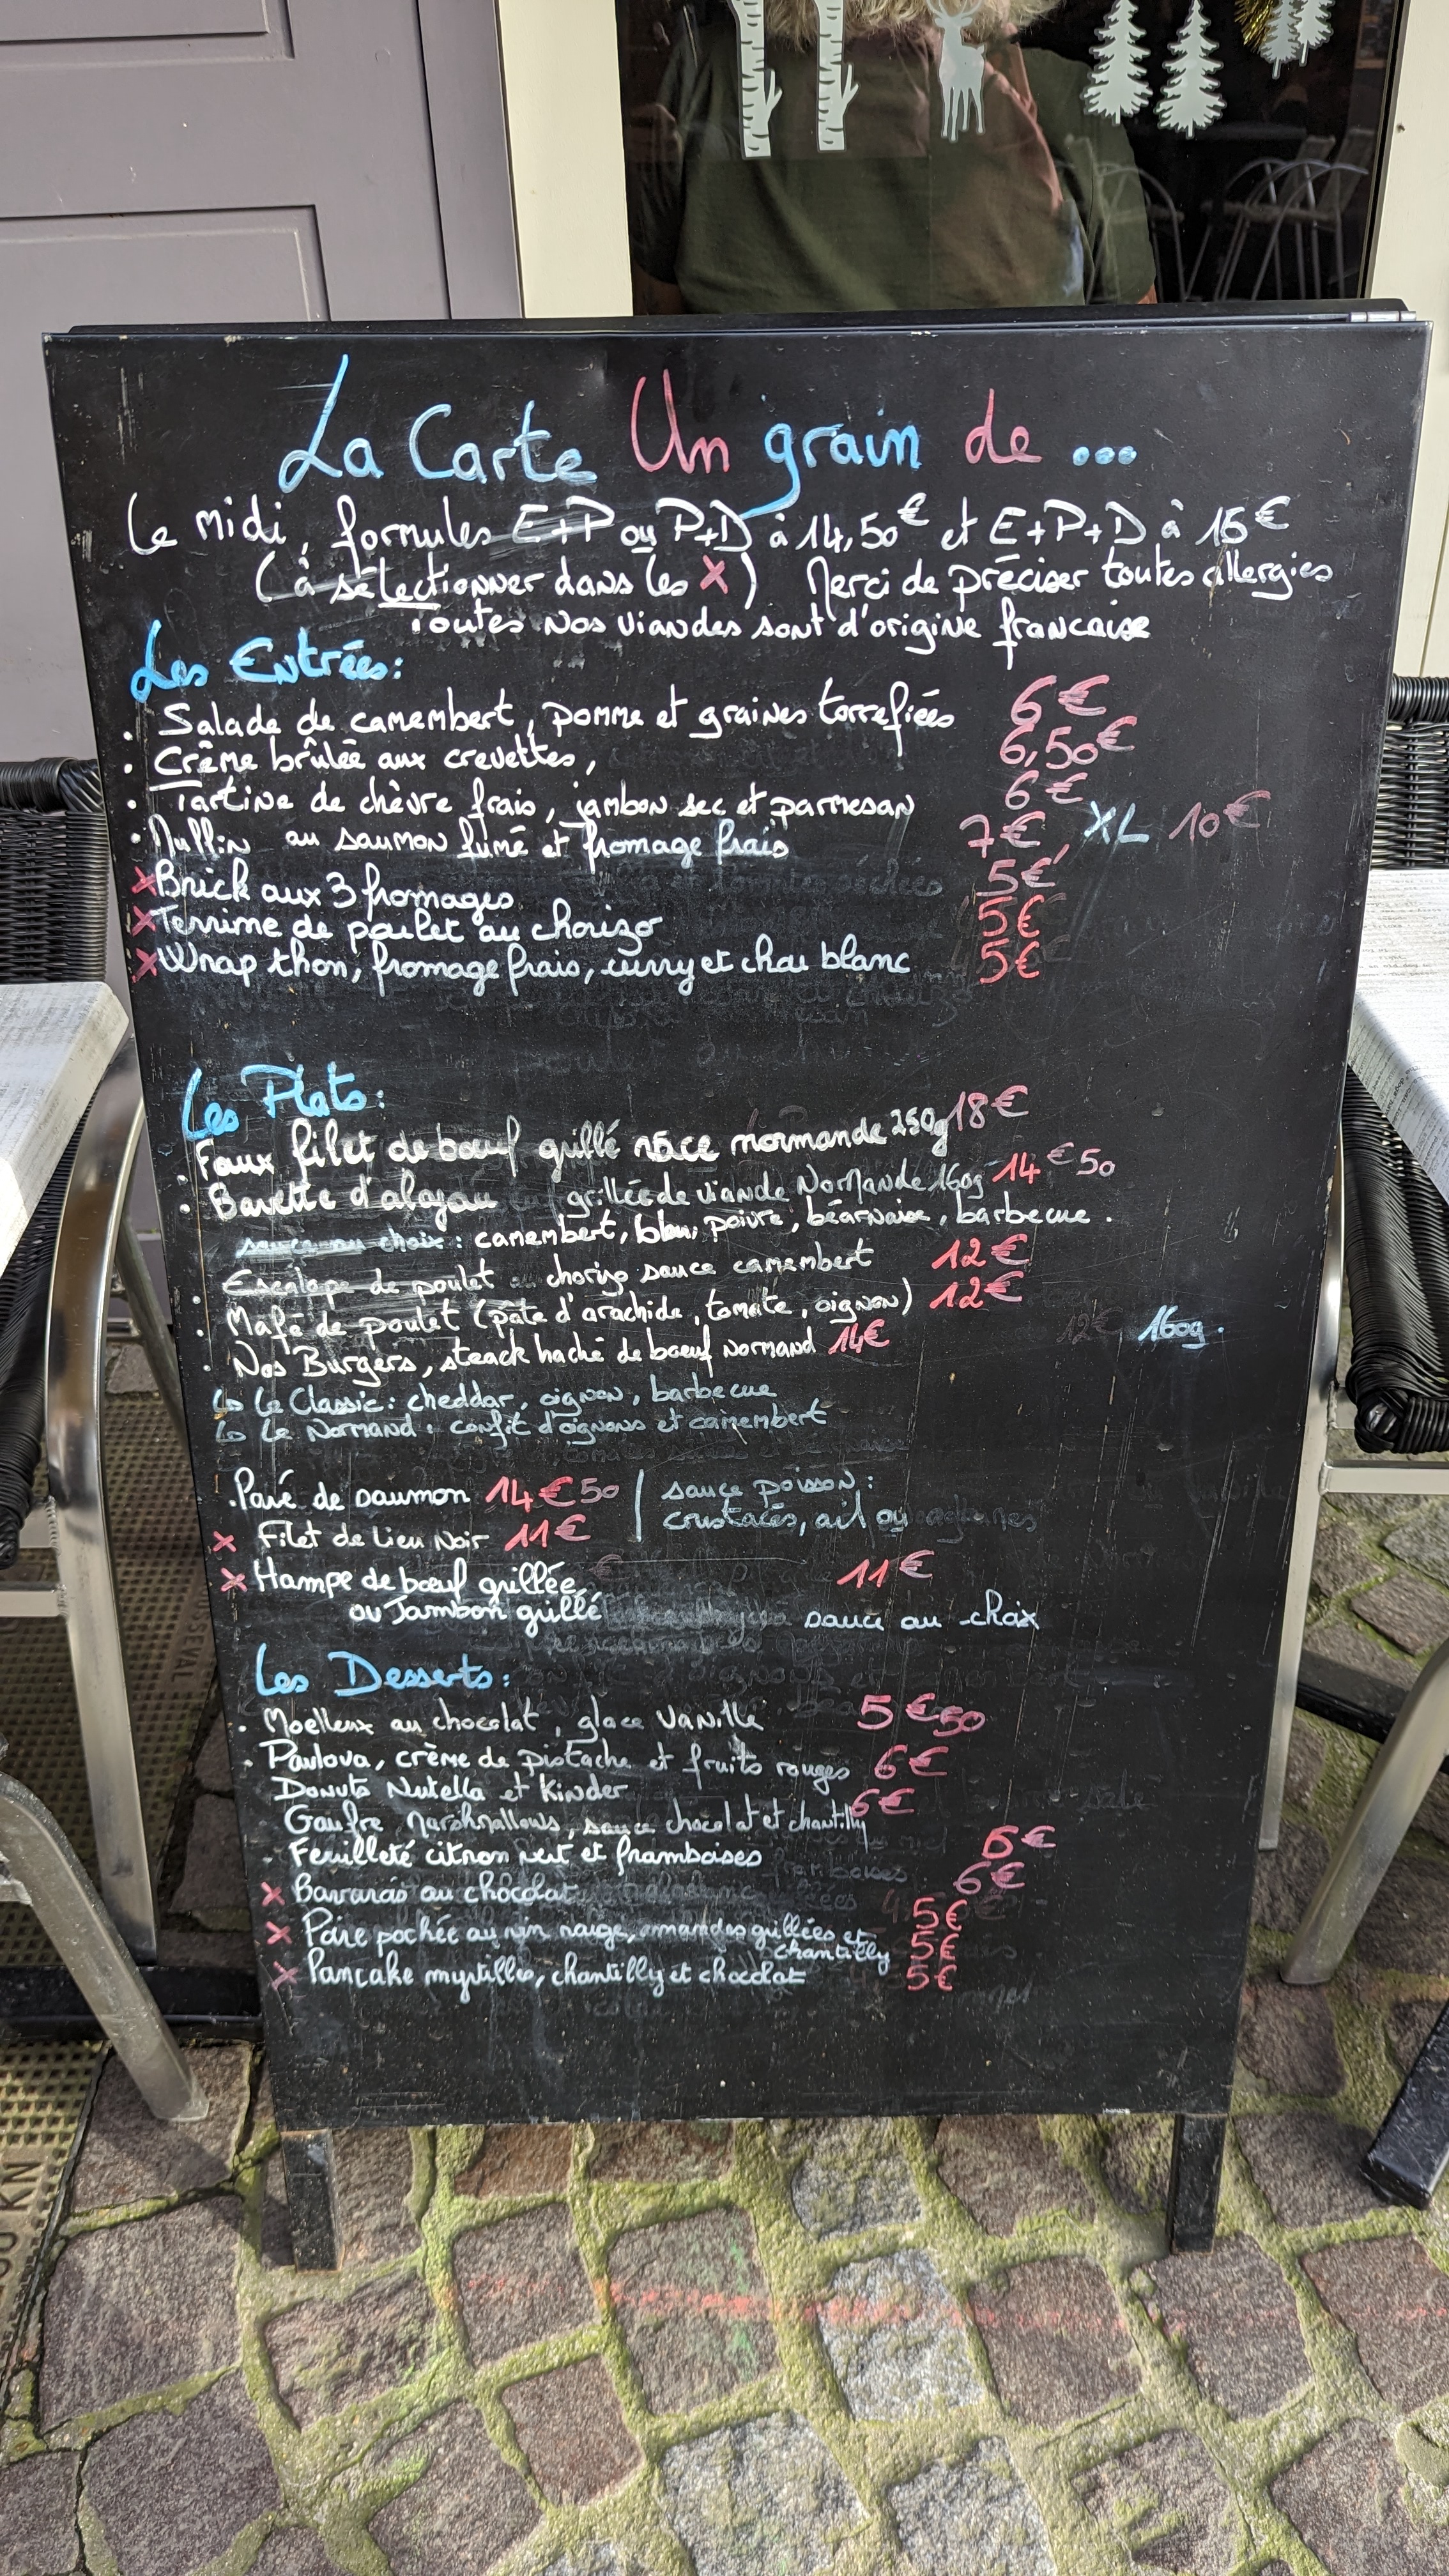 La Carte Un grain de ...
Le midi, formules E+P ou P+D à 14,50€ et E+P+D à 15€
(à sélectionner dans les X) Merci de préciser toutes allergies
Toutes nos viandes sont d'origine francaise
Les Entrées:
. Salade de camembert, pomme et graines torrefiées 6€
. Crême brûlée aux crevettes, 6,50€
. Tartine de chèvre frais, jambon sec et parmesan 6€
. Muffin au saumon fumé et fromage frais 7€ XL 10€
X Brick aux 3 fromages 5€
X Terrine de poulet au chorizo 5€
X Wrap thon, fromage frais, curry et chou blanc 5€
Les Plats:
. Faux filet de bœuf grillé race normande 250g 18€
. Bavette d'aloyau grillée de viande Normande 160g 14€50
sauce au choix: camembert, bleu, poivre, béarnaise, barbecue.
. Escalope de poulet chorizo sauce camembert 12€
. Mafé de poulet (pâte d'arachide, tomate, oignon) 12€
. Nos Burgers, steack haché de bœuf Normand 14€ 12€ 160g.
Le Classic: cheddar, oignon, barbecue
Le Normand: confit d'oignons et camembert
. Pavé de saumon 14€50 | sauce poisson:
crustacés, ail ou
X Filet de Lieu Noir 11€
X Hampe de bœuf grillée 11€
ou Jambon grillé sauce au choix
Les Desserts:
. Moelleux au chocolat, glace vanille 5€50
. Pavlova, crème de pistache et fruits rouges 6€
Donuts Nutella et Kinder 6€
Gaufre Marshmallows, sauce chocolat et chantilly 6€
. Feuilleté citron vert et framboises 6€
X Bavarois au chocolat 5€
X Poire pochée au vin rouge, amandes grillées et chantilly 5€
X Pancake myrtilles, chantilly et chocolat 5€